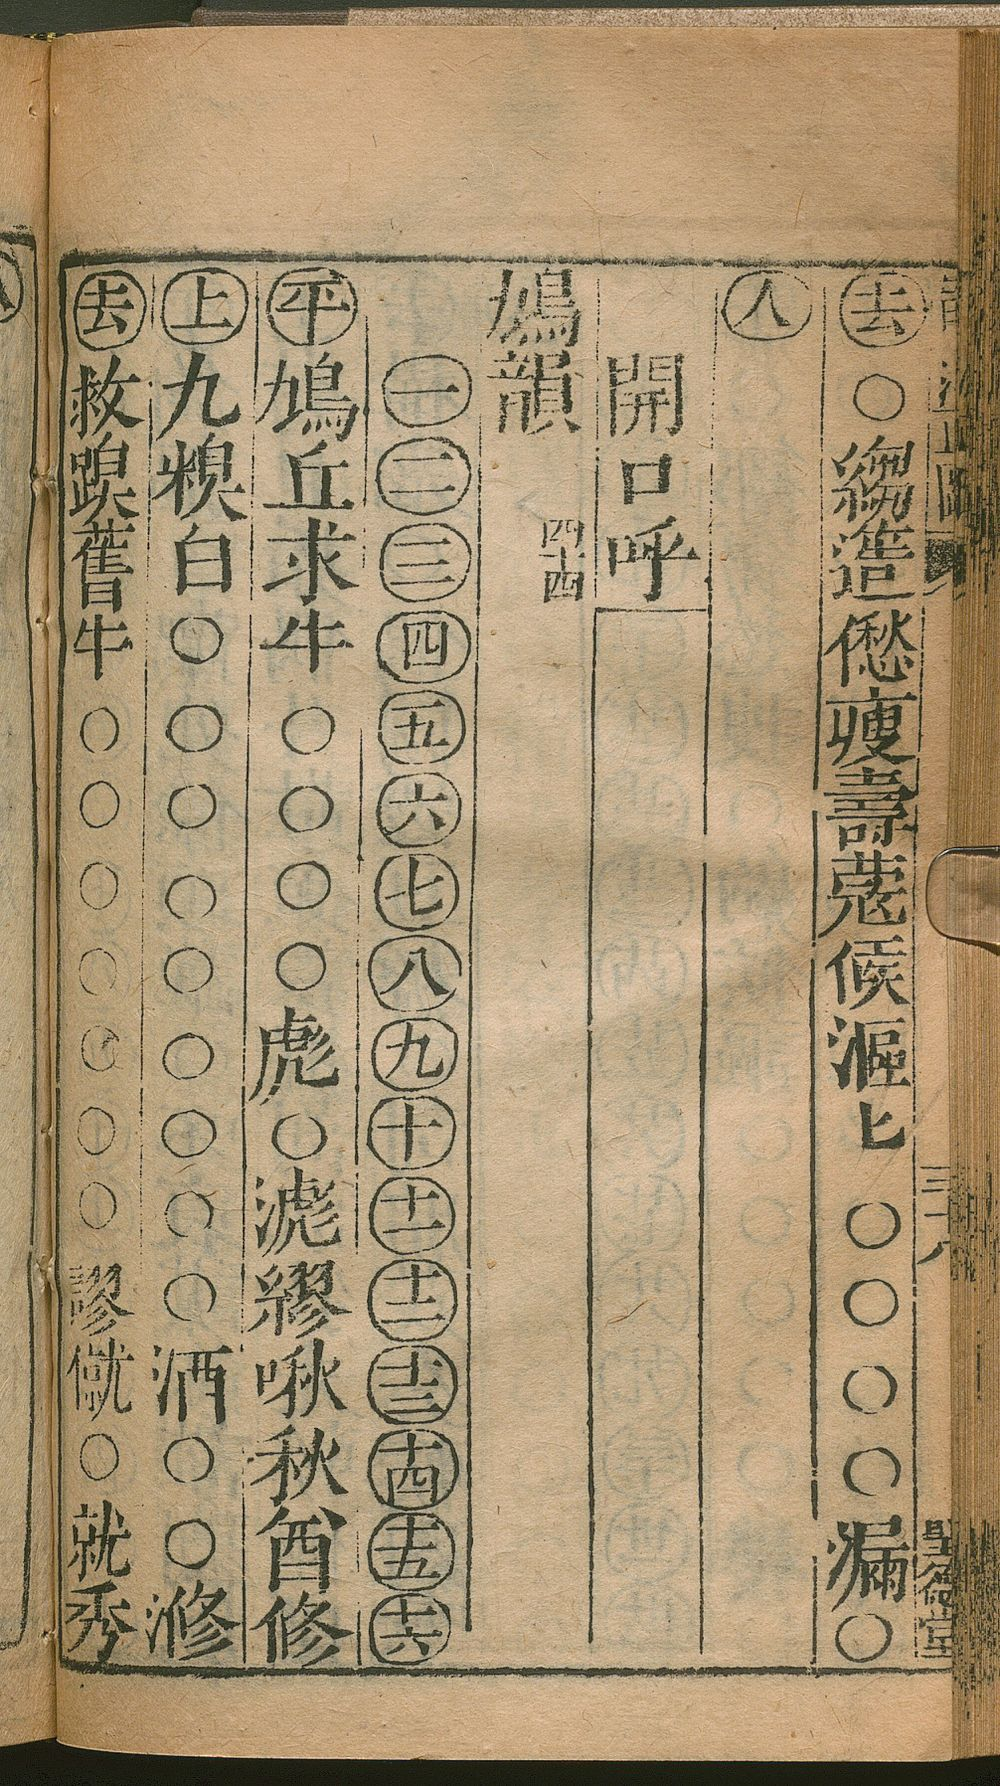 去○縐造僽瘦壽蔻候漚匕○○○○漏○
入
開口呼
鳩韻 四十四
一二三四五六七八九十十一十二十三十四十五十六
平鳩丘求牛○○○○彪○滮繆啾秋酋修
上九糗臼○○○○○○○○○酒○○滫
去救䠗舊牛○○○○○○○謬僦○就秀
聖德堂